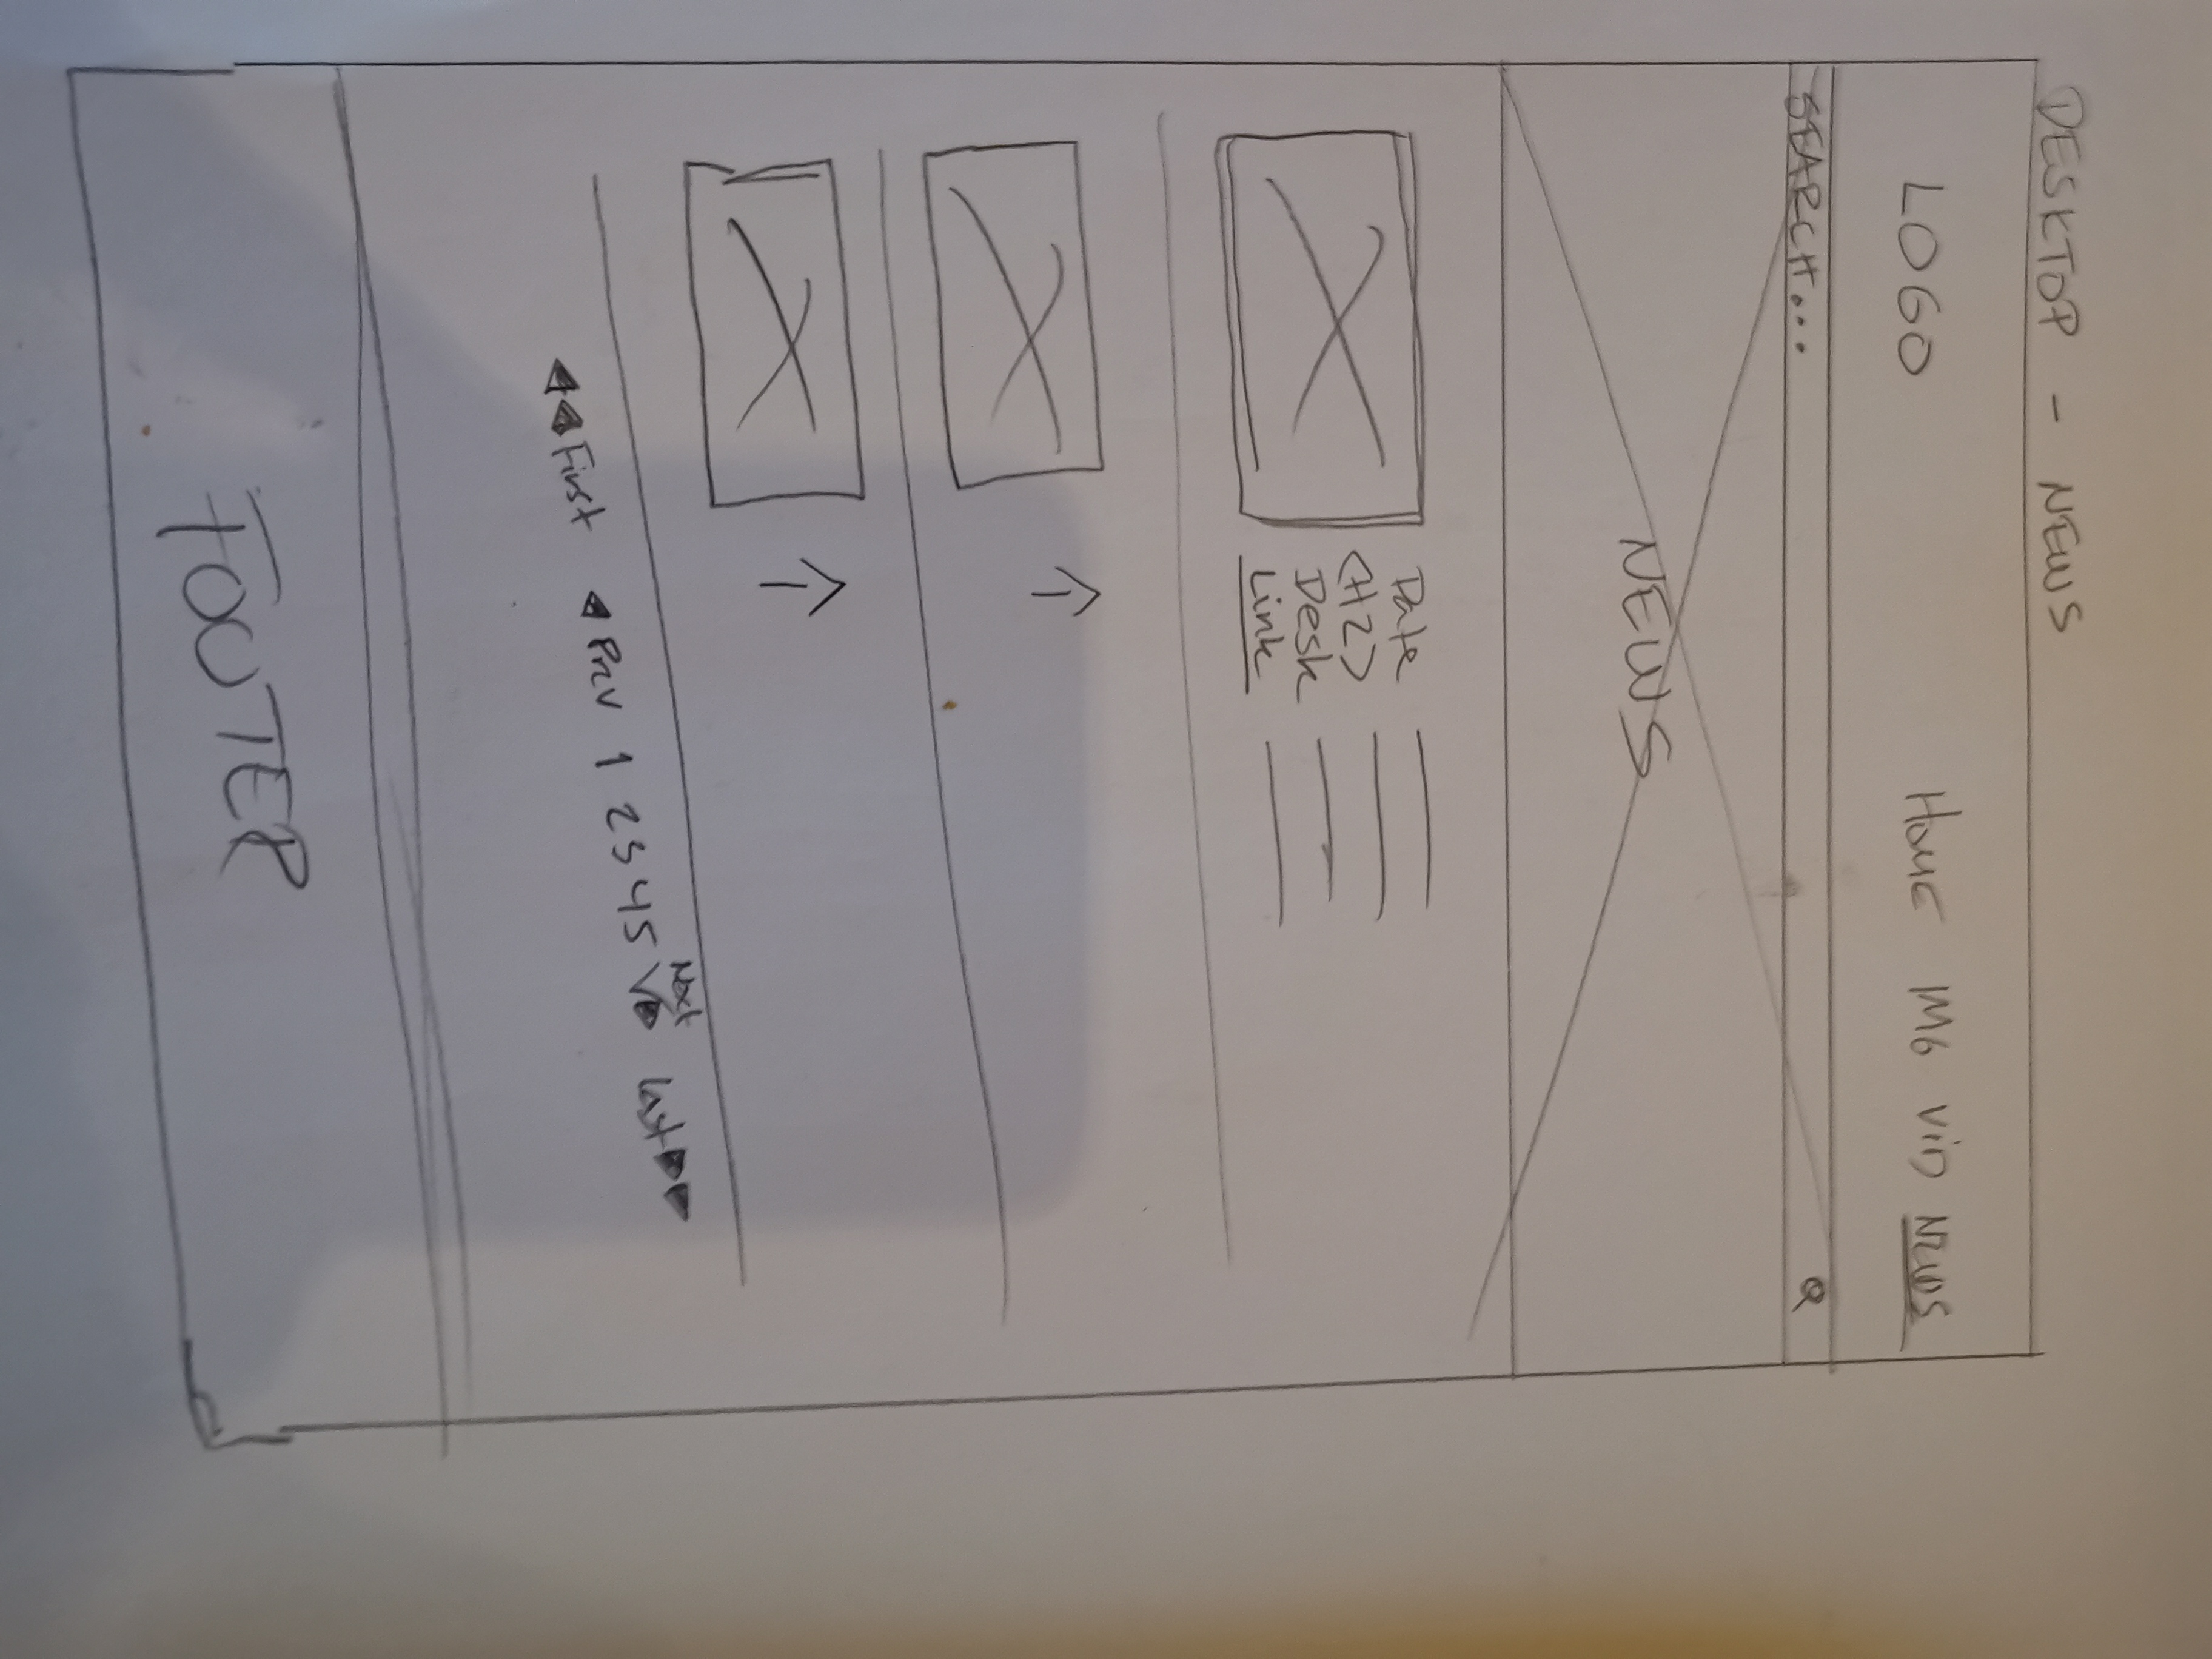 DESKTOP - NEWS
LOGO HOME IMG VID NEWS
SEARCH...
NEWS
Date
<H2>
Desk
Link
Next
First Prev 1 2 3 4 5 Last
FOOTER